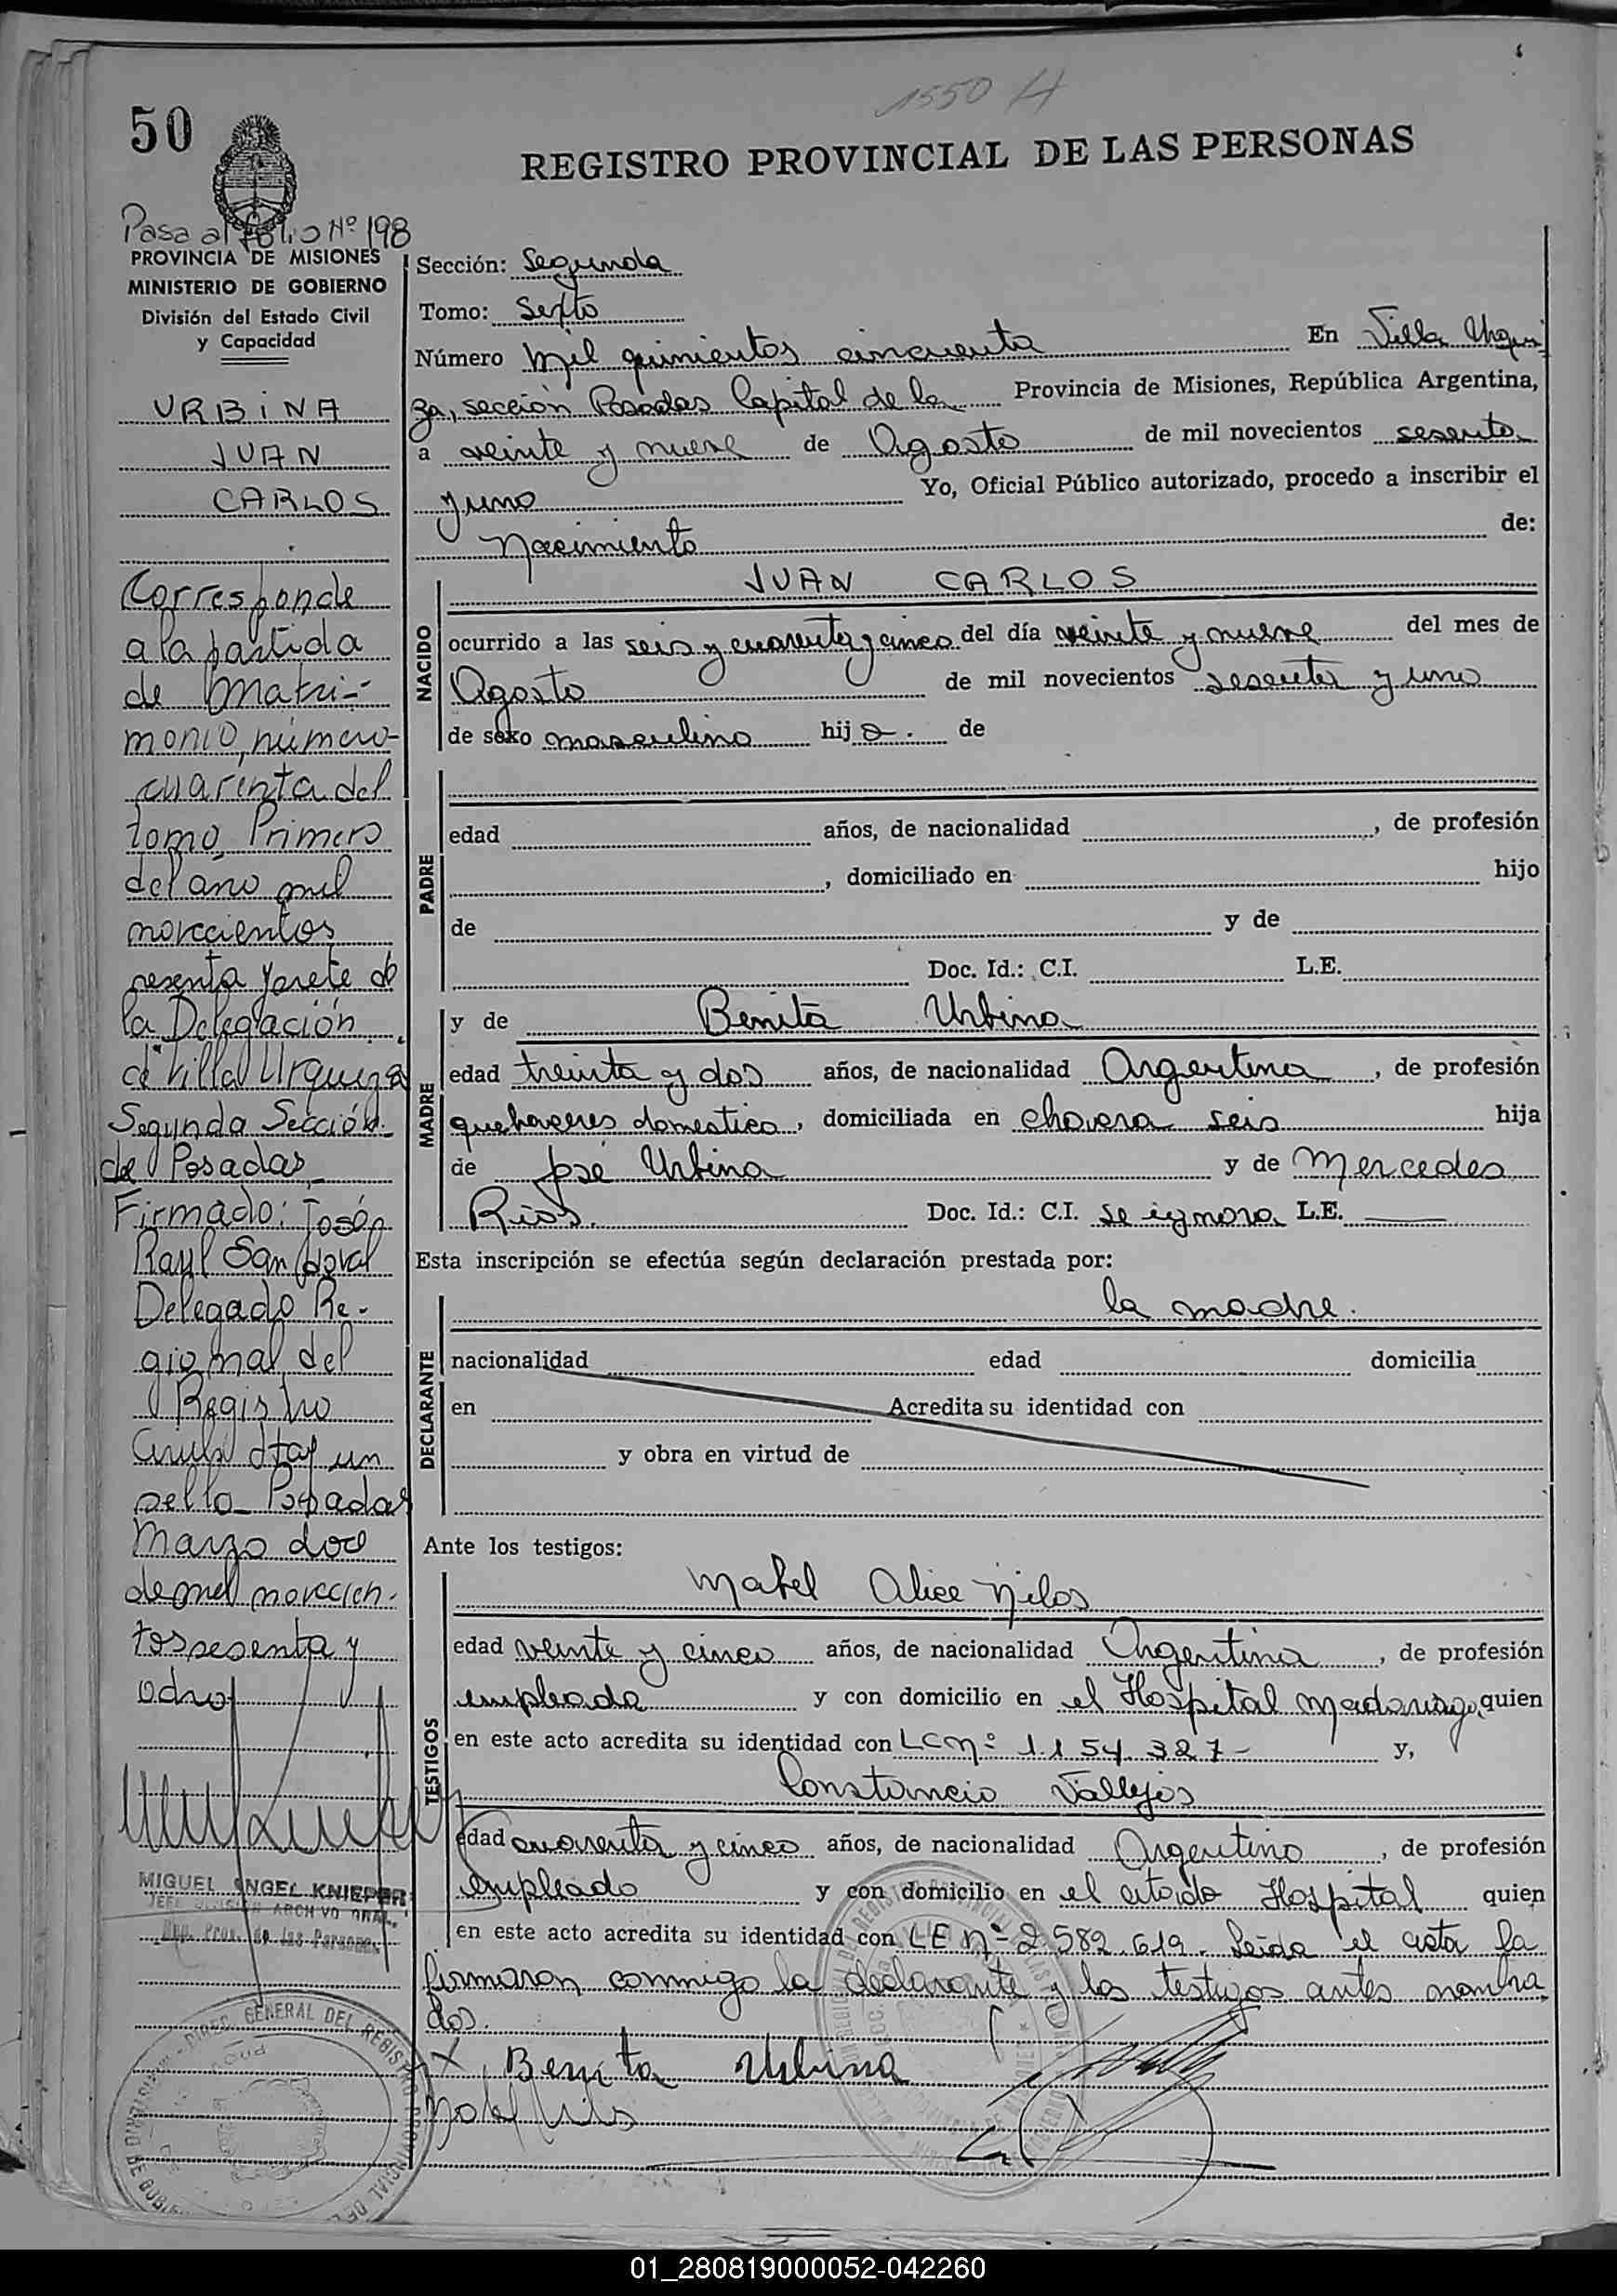 1550 A
50
REGISTRO PROVINCIAL DE LAS PERSONAS
Pasa al folio Nº 198
PROVINCIA DE MISIONES
MINISTERIO DE GOBIERNO
División del Estado Civil
y Capacidad
URBINA
JUAN
CARLOS
Corresponde
a la partida
de Matri-
monio, número
cuarenta del
tomo Primero
del año mil
novecientos
sesenta y siete de
la Delegación
de Villa Urquiza
Segunda Sección
de Posadas
Firmado:
Raul Sandoval
Delegado Re-
gional del
Registro
un
sello Posadas
Marzo doce
de mil novecien-
tos sesenta y
ocho
MIGUEL ANGEL KNIEPER
JEFE DIVISION ARCHIVO GRAL.
Reg. Prov. de las Personas
DIREC. GENERAL DEL REGISTRO PROVINCIAL DE
Sección: Segunda
Tomo: Sexto
Número Mil quinientos cincuenta En Villa Urqui
za, sección Posadas Capital de la Provincia de Misiones, República Argentina,
a veinte y nueve de Agosto de mil novecientos sesenta
y uno Yo, Oficial Público autorizado, procedo a inscribir el
Nacimiento de:
NACIDO
JUAN CARLOS
ocurrido a las seis y cuarenta y cinco del día veinte y nueve del mes de
Agosto de mil novecientos sesenta y uno
de sexo masculino hijo. de
PADRE
edad años, de nacionalidad , de profesión
, domiciliado en hijo
de y de
Doc. Id.: C.I. L.E.
MADRE
y de Benita Urbina
edad treinta y dos años, de nacionalidad Argentina, de profesión
quehaceres domestico, domiciliada en chacra seis hija
de José Urbina y de Mercedes
Rios. Doc. Id.: C.I. se ignora L.E. —
Esta inscripción se efectúa según declaración prestada por:
DECLARANTE
la madre.
nacionalidad edad domicilia
en Acredita su identidad con
y obra en virtud de
Ante los testigos:
TESTIGOS
Mabel Alice Nilos
edad veinte y cinco años, de nacionalidad Argentina, de profesión
empleada y con domicilio en el Hospital Madariaga, quien
en este acto acredita su identidad con LC Nº 1.154.327- y,
Constancio Vallejos
edad cuarenta y cinco años, de nacionalidad Argentino, de profesión
empleado y con domicilio en el citado Hospital quien
en este acto acredita su identidad con LE Nº 2.582.619. Leida el acta la
firmaron conmigo la declarante y los testigos antes nombra
dos.
x Benita Urbina
01_280819000052-042260